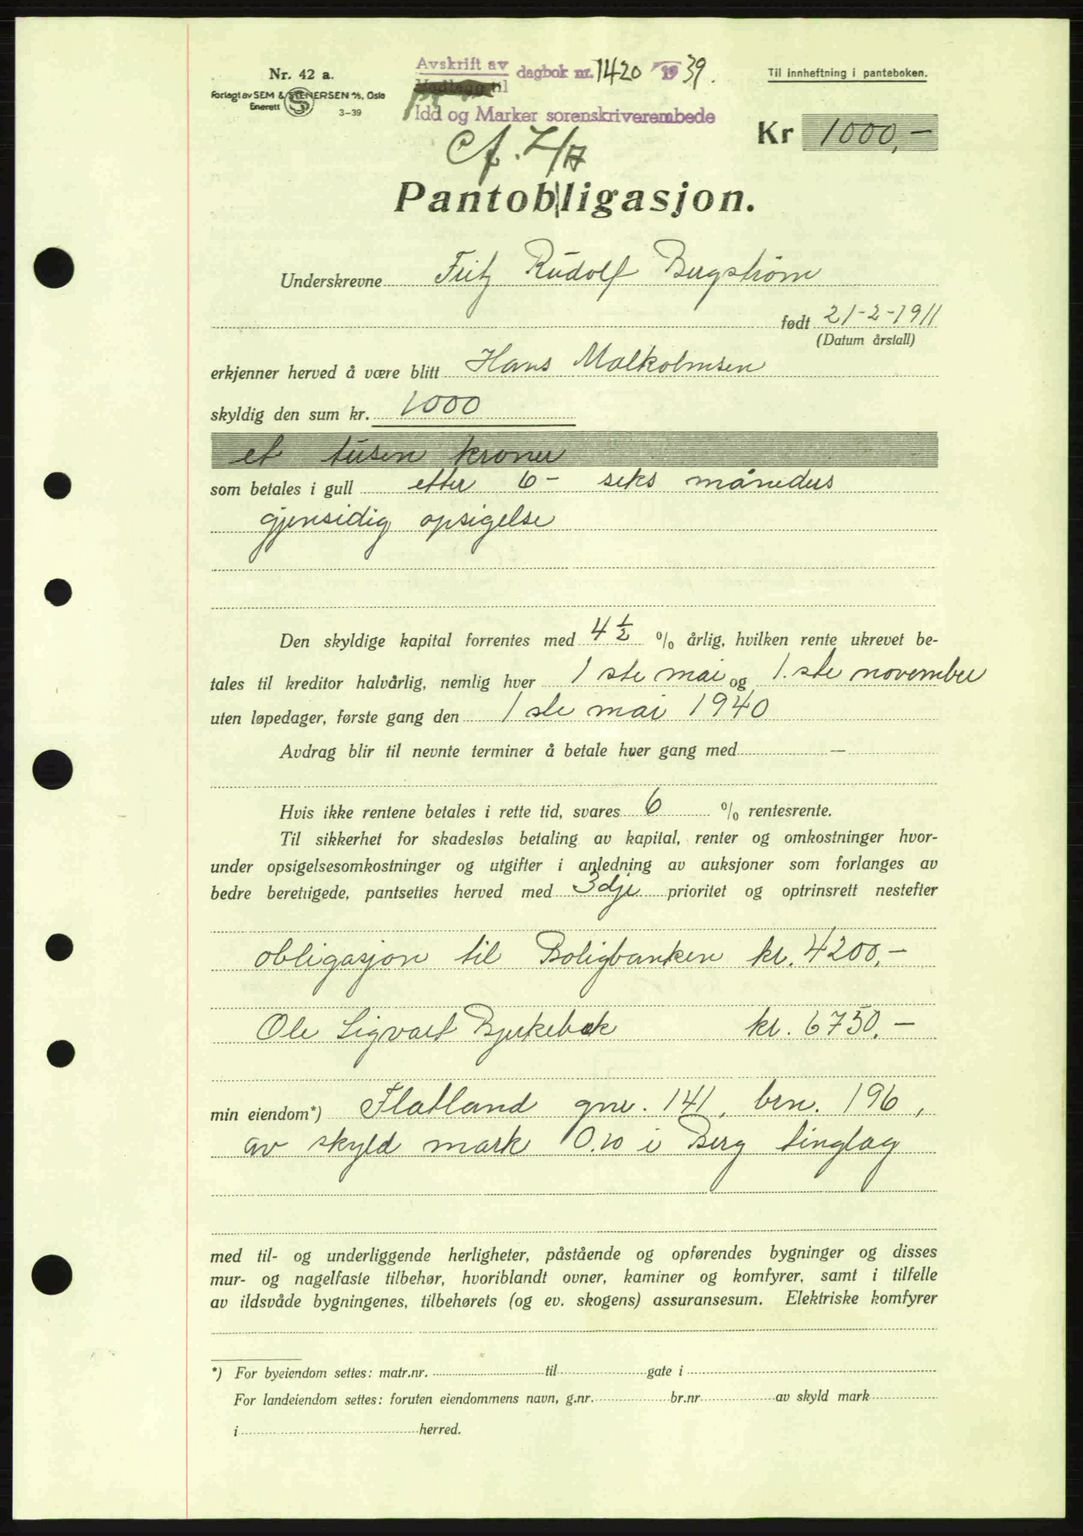 Nr. 42 a.
Forlagt av SEM & STENERSEN A/S, Oslo
Enerett
3-39
Avskrift av
Vedlegg til
dagbok nr. 1420 1939.
Idd og Marker sorenskriverembede
Til innheftning i panteboken.
Kr 1000,-
Pantobligasjon.
Underskrevne Fritz Rudolf Bergström
født 21-2-1911
(Datum årstall)
erkjenner herved å være blitt Hans Malkolmsen
skyldig den sum kr. 1000
et tusen kroner
som betales i gull etter 6- seks måneders
gjensidig opsigelse
Den skyldige kapital forrentes med 4 1/2 % årlig, hvilken rente ukrevet be-
tales til kreditor halvårlig, nemlig hver 1 ste mai og 1. ste november
uten løpedager, første gang den 1 ste mai 1940
Avdrag blir til nevnte terminer å betale hver gang med —
Hvis ikke rentene betales i rette tid, svares 6 % rentesrente.
Til sikkerhet for skadesløs betaling av kapital, renter og omkostninger hvor-
under opsigelsesomkostninger og utgifter i anledning av auksjoner som forlanges av
bedre berettigede, pantsettes herved med 3dje prioritet og optrinsrett nestefter
obligasjon til Boligbanken kr. 4200,-
Ole Sigvart Bjerkebæk kr. 6750,-
min eiendom*) Flatland gnr. 141, brn. 196,
av skyld mark 0.20 i Berg tinglag
med til- og underliggende herligheter, påstående og opførendes bygninger og disses
mur- og nagelfaste tilbehør, hvoriblandt ovner, kaminer og komfyrer, samt i tilfelle
av ildsvåde bygningenes, tilbehørets (og ev. skogens) assuransesum. Elektriske komfyrer
*) For byeiendom settes: matr.nr. til gate i
For landeiendom settes: foruten eiendommens navn, g.nr. br.nr av skyld mark
i herred.